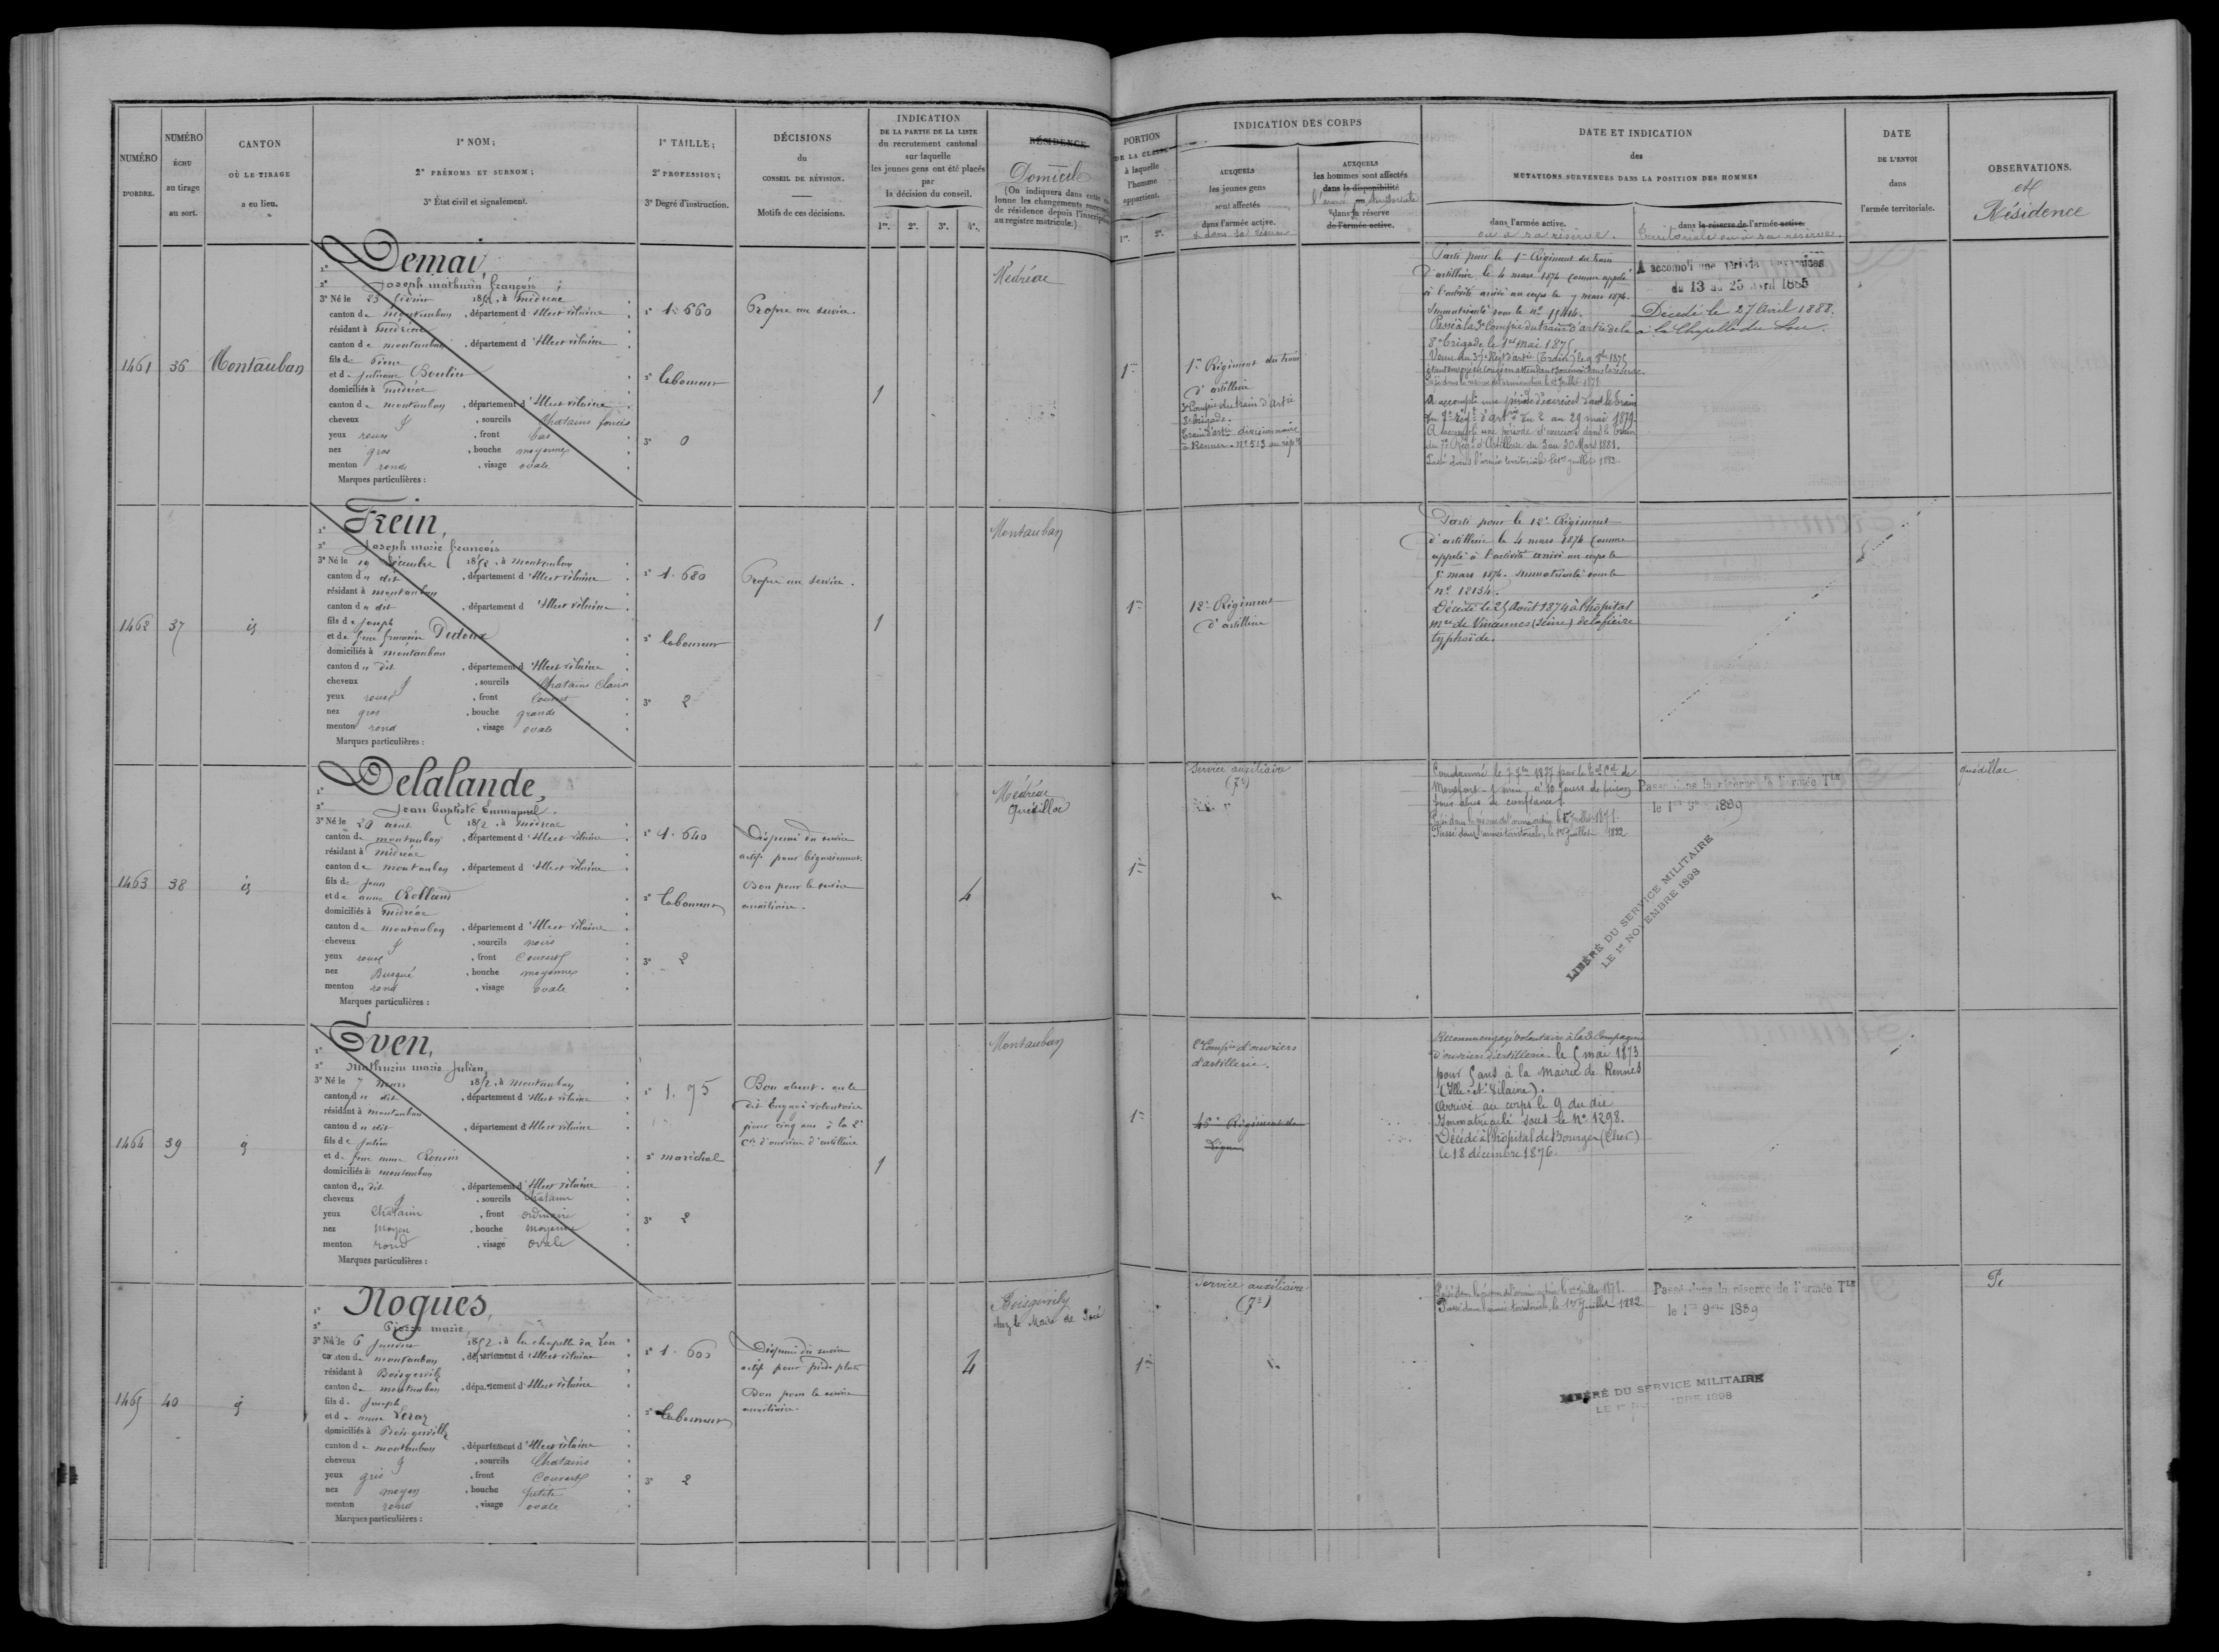 NUMÉRO
D'ORDRE.
NUMÉRO
ÉCHU
au tirage
au sort.
CANTON
OÙ LE TIRAGE
a eu lieu.
1º NOM;
2º PRÉNOMS ET SURNOM;
3º État civil et signalement.
1º TAILLE;
2º PROFESSION;
3º Degré d'instruction.
DÉCISIONS
du
CONSEIL DE RÉVISION.
Motifs de ces décisions.
INDICATION
DE LA PARTIE DE LA LISTE
du recrutement cantonal
sur laquelle
les jeunes gens ont été placés
par
la décision du conseil.
1re. 2e. 3e. 4e.
RÉSIDENCE
Domicile
(On indiquera dans cette
lonne les changements
de résidence depuis
au registre matricule.)
PORTION
DE LA CLASSE
à laquelle
l'homme
appartient.
1re. 2e.
INDICATION DES CORPS
AUXQUELS
les jeunes gens
sont affectés
dans l'armée active.
& dans sa réserve
AUXQUELS
les hommes sont affectés
dans la disponibilité
l'armée territoriale
dans la réserve
de l'armée active.
DATE ET INDICATION
des
MUTATIONS SURVENUES DANS LA POSITION DES HOMMES
dans l'armée active.
ou à sa réserve.
dans la réserve de l'armée active.
territoriale ou à sa réserve.
DATE
DE L'ENVOI
dans
l'armée territoriale.
OBSERVATIONS.
et
Résidence
1461 36 Montauban
1º Demai,
2º Joseph mathurin françois
3º Né le 23 février 1852, à médréac
canton de montauban, département d'Ille et vilaine
résidant à médréac
canton de montauban, département d'Ille et vilaine
fils de Pierre
et de Julienne Boulin
domiciliés à médréac
canton de montauban, département d'Ille et vilaine
cheveux &, sourcils Chatains foncés
yeux roux, front bas
nez gros, bouche moyenne
menton rond, visage ovale
Marques particulières :
1º 1.660
2º laboureur
3º 0
Propre au service.
1
Médréac
1re
1er Régiment du train
d'artillerie
3e Compie du train d'Artie
8e brigade.
Train d'artie divisionnaire
à Rennes. Nº 513 au
Parti pour le 1er Régiment du train
d'artillerie le 4 mars 1874 comme appelé
à l'activité arrivé au corps le 7 mars 1874.
Immatriculé sous le nº
Passé à la 3e Compie du train d'artie de la
8e brigade le 1er mai 1875
Passé dans l'armée territoriale le 1er juillet 1882.
A accompli une période d'exercices dans le train
du 7e Régt d'artie du 2 au 29 mai 1879.
A accompli une période d'exercices dans le train
du 7e Régt d'Artillerie du 3 au 30 Mars 1881.
A accompli une période d'exercices
du 13 au 25 avril 1885
Décédé le 27 Avril 1888.
à la Chapelle du Lou.
1462 37 id
1º Frein,
2º Joseph marie françois
3º Né le 19 décembre 1852, à montauban
canton du dit, département d'Ille et vilaine
résidant à montauban
canton du dit, département d'Ille et vilaine
fils de Joseph
et de feue françoise Dedoux
domiciliés à montauban
canton du dit, département d'Ille et vilaine
cheveux &, sourcils Chatains clairs
yeux roux, front couvert
nez gros, bouche grande
menton rond, visage ovale
Marques particulières :
1º 1.680
2º laboureur
3º 2
Propre au service.
1
Montauban
1re
12e Régiment
d'artillerie
Parti pour le 12e Régiment
d'artillerie le 4 mars 1874 comme
appelé à l'activité arrivé au corps le
5 mars 1874. immatriculé sous le
nº 12134.
Décédé le 25 Août 1874 à l'hôpital
mre de Vincennes (Seine) de la fièvre
typhoïde.
1463 38 id
1º Delalande,
2º Jean Baptiste Emmanuel,
3º Né le 20 août 1852, à médréac
canton de montauban, département d'Ille et vilaine
résidant à médréac
canton de montauban, département d'Ille et vilaine
fils de Jean
et de anne Rolland
domiciliés à médréac
canton de montauban, département d'Ille et vilaine
cheveux &, sourcils noirs
yeux roux, front Couvert
nez Busqué, bouche moyenne
menton rond, visage ovale
Marques particulières :
1º 1.640
2º laboureur
3º 2
Dispensé du service
actif pour bégaiement.
Bon pour le service
auxiliaire.
4
Médréac
Quédillac
1re
Service auxiliaire
(7e)
Condamné le 7 par le de
Monfort-s-meu à 10 jours de prison
pour abus de confiance.
Passé dans l'armée territoriale, le 1er Juillet 1882
Passé dans la réserve de l'armée Tle
le 1er 9bre 1889
LIBÉRÉ DU SERVICE MILITAIRE
LE 1er NOVEMBRE 1898
Quédillac
1464 39 id
1º Even,
2º Mathurin marie Julien,
3º Né le 7 mars 1852, à montauban
canton du dit, département d'Ille et vilaine
résidant à montauban
canton du dit, département d'Ille et vilaine
fils de Julien
et de feue anne
domiciliés à montauban
canton du dit, département d'Ille et vilaine
cheveux &, sourcils Chatain
yeux Chatain, front ordinaire
nez Moyen, bouche moyenne
menton rond, visage ovale
Marques particulières :
1º 1.75
2º maréchal
3º 2
Bon absent. on le
dit Engagé volontaire
pour cinq ans à la 2e
Cie d'ouvriers d'artillerie
1
Montauban
1re
2e Compie d'ouvriers
d'artillerie.
Régiment de
Ligne
Reconnu engagé volontaire à la 2e Compagnie
d'ouvriers d'artillerie le 5 mai 1873
pour 5 ans à la mairie de Rennes
(Ille-et-Vilaine).
Arrivé au corps le 9 du dit
Immatriculé sous le nº 1298.
Décédé à l'hôpital de Bourges (Cher)
le 18 décembre 1876.
1465 40 id
1º Nogues,
2º Pierre marie
3º Né le 6 Janvier 1852, à la chapelle du Lou
canton de montauban, département d'Ille et vilaine
résidant à Boisgervilly
canton de montauban, département d'Ille et vilaine
fils de Joseph
et de anne
domiciliés à Boisgervilly
canton de montauban, département d'Ille et vilaine
cheveux &, sourcils Chatains
yeux gris, front Couvert
nez moyen, bouche petite
menton rond, visage ovale
Marques particulières :
1º 1.600
2º laboureur
3º 2
Dispensé du service
actif pour pieds plats
Bon pour le service
auxiliaire.
4
Boisgervilly
chez le Maire de
1re
Service auxiliaire
(7e)
Passé dans l'armée territoriale, le 1er Juillet 1882
Passé dans la réserve de l'armée Tle
le 1er 9bre 1889
LIBÉRÉ DU SERVICE MILITAIRE
LE 1er NOVEMBRE 1898